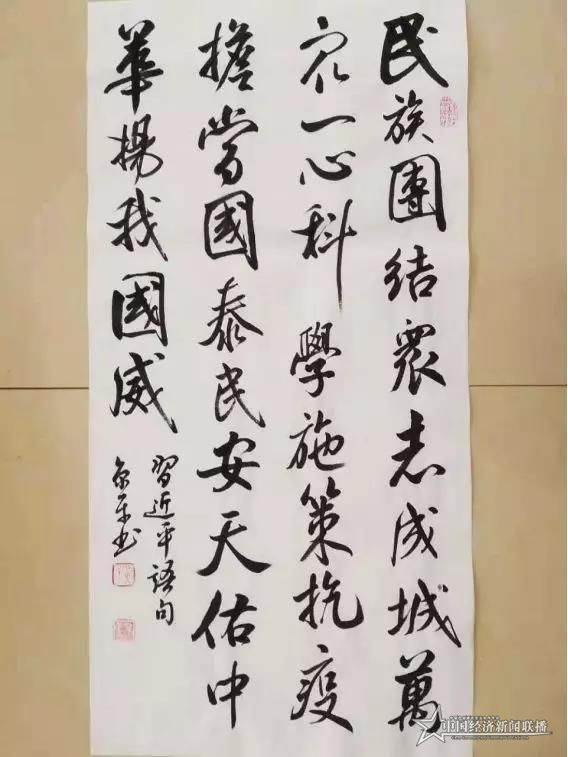 民族團結衆志成城萬
众一心科學施策抗疫
擔當國泰民安天佑中
華揚我國威
習近平語句
书
中国经济新闻联播